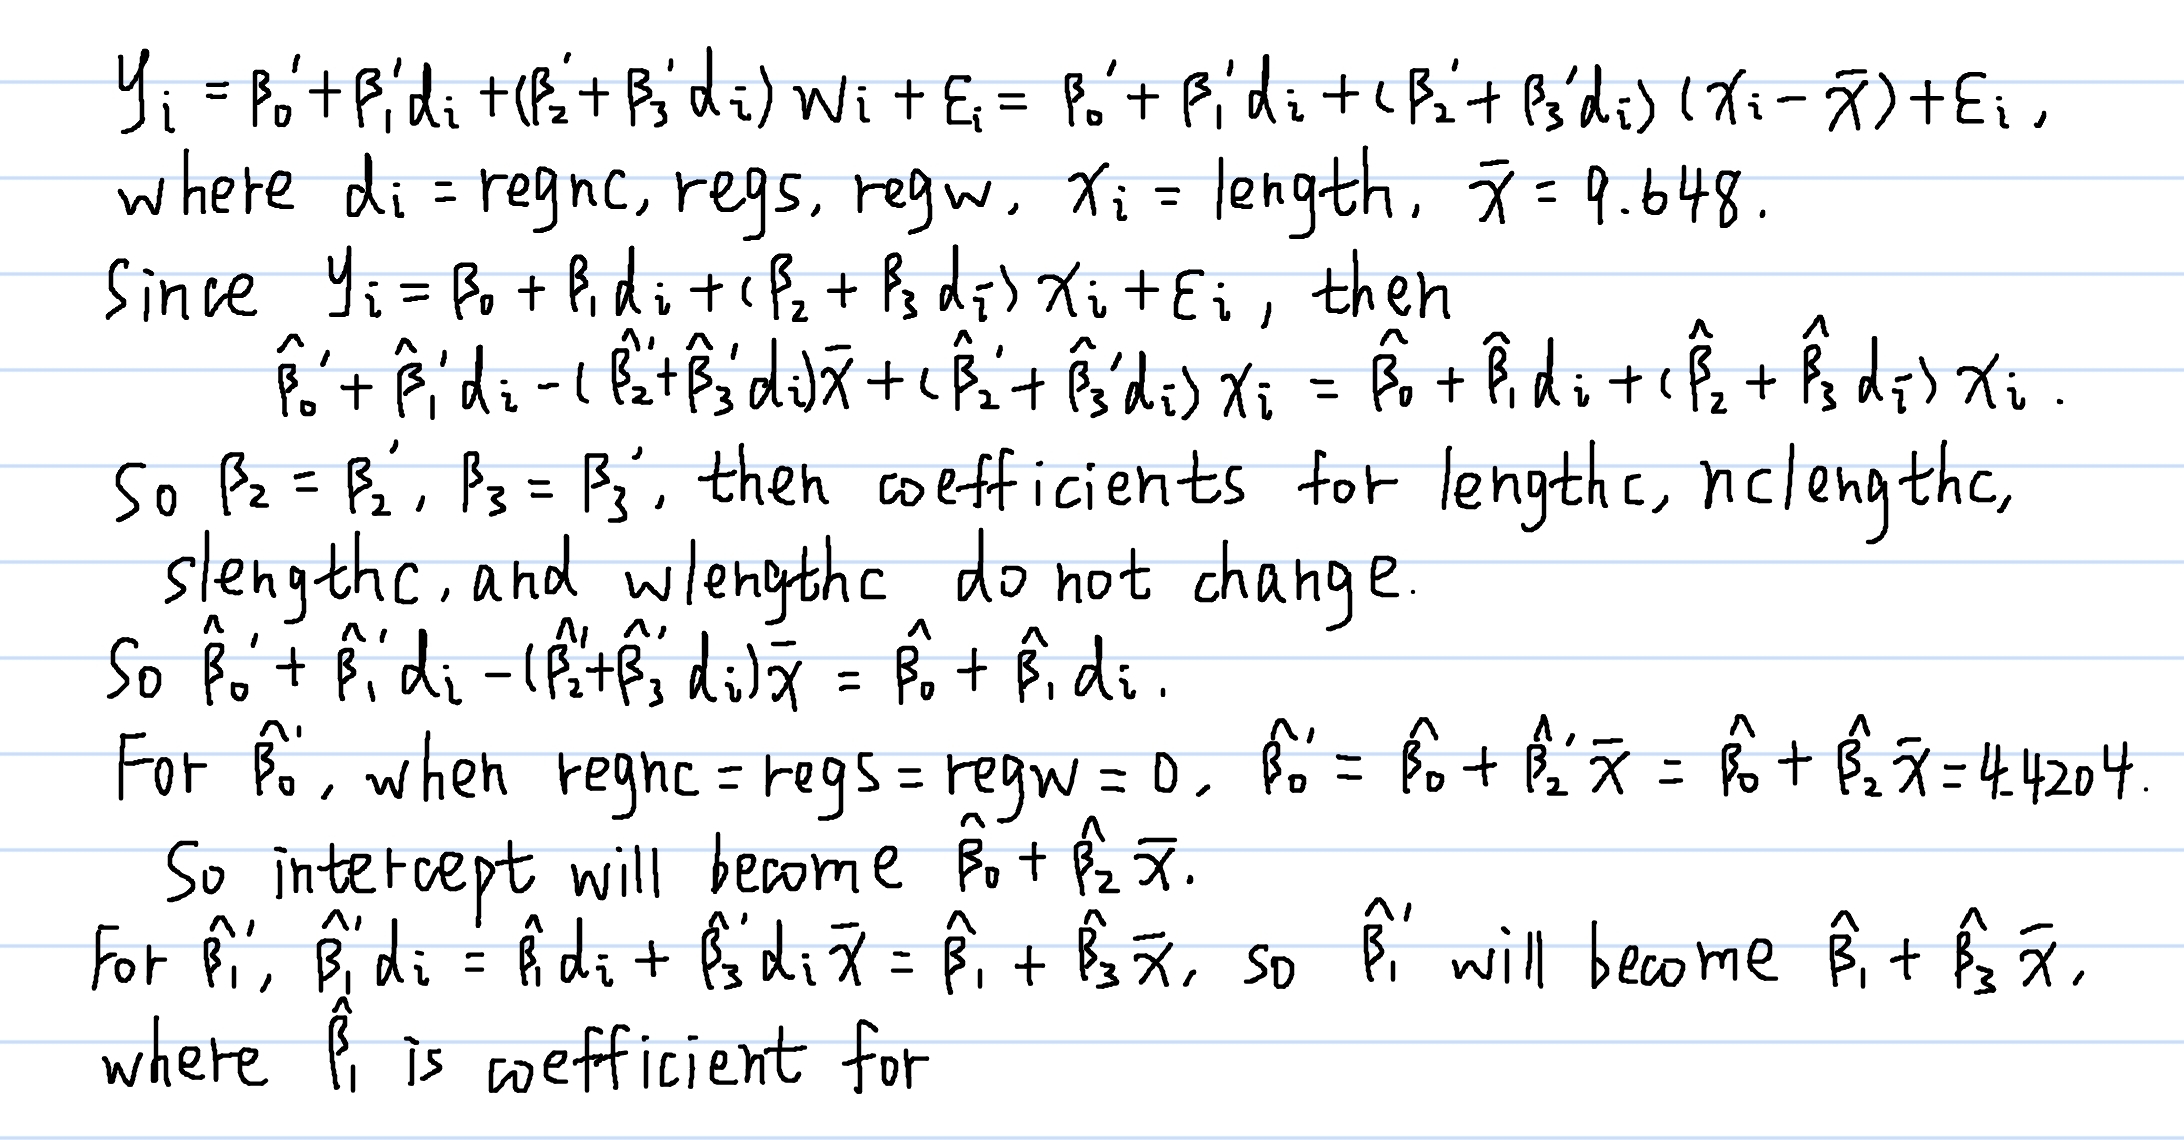 yᵢ = β₀' + β₁'dᵢ + (β₂' + β₃'dᵢ) wᵢ + εᵢ = β₀' + β₁'dᵢ + (β₂' + β₃'dᵢ) (xᵢ - x̄) + εᵢ,
where dᵢ = regnc, regs, regw, xᵢ = length, x̄ = 9.648.
Since yᵢ = β₀ + β₁dᵢ + (β₂ + β₃dᵢ) xᵢ + εᵢ, then
β̂₀' + β̂₁'dᵢ - (β̂₂' + β̂₃'dᵢ)x̄ + (β̂₂' + β̂₃'dᵢ) xᵢ = β̂₀ + β̂₁dᵢ + (β̂₂ + β̂₃dᵢ) xᵢ.
So β₂ = β₂', β₃ = β₃', then coefficients for lengthc, nclengthc,
slengthc, and wlengthc do not change.
So β̂₀' + β̂₁'dᵢ - (β̂₂' + β̂₃'dᵢ)x̄ = β̂₀ + β̂₁dᵢ.
For β̂₀', when regnc = regs = regw = 0, β̂₀' = β̂₀ + β̂₂'x̄ = β̂₀ + β̂₂x̄ = 4.4204.
So intercept will become β̂₀ + β̂₂x̄.
For β̂₁', β̂₁'dᵢ = β̂₁dᵢ + β̂₃'dᵢx̄ = β̂₁ + β̂₃x̄, so β̂₁' will become β̂₁ + β̂₃x̄,
where β̂₁ is coefficient for